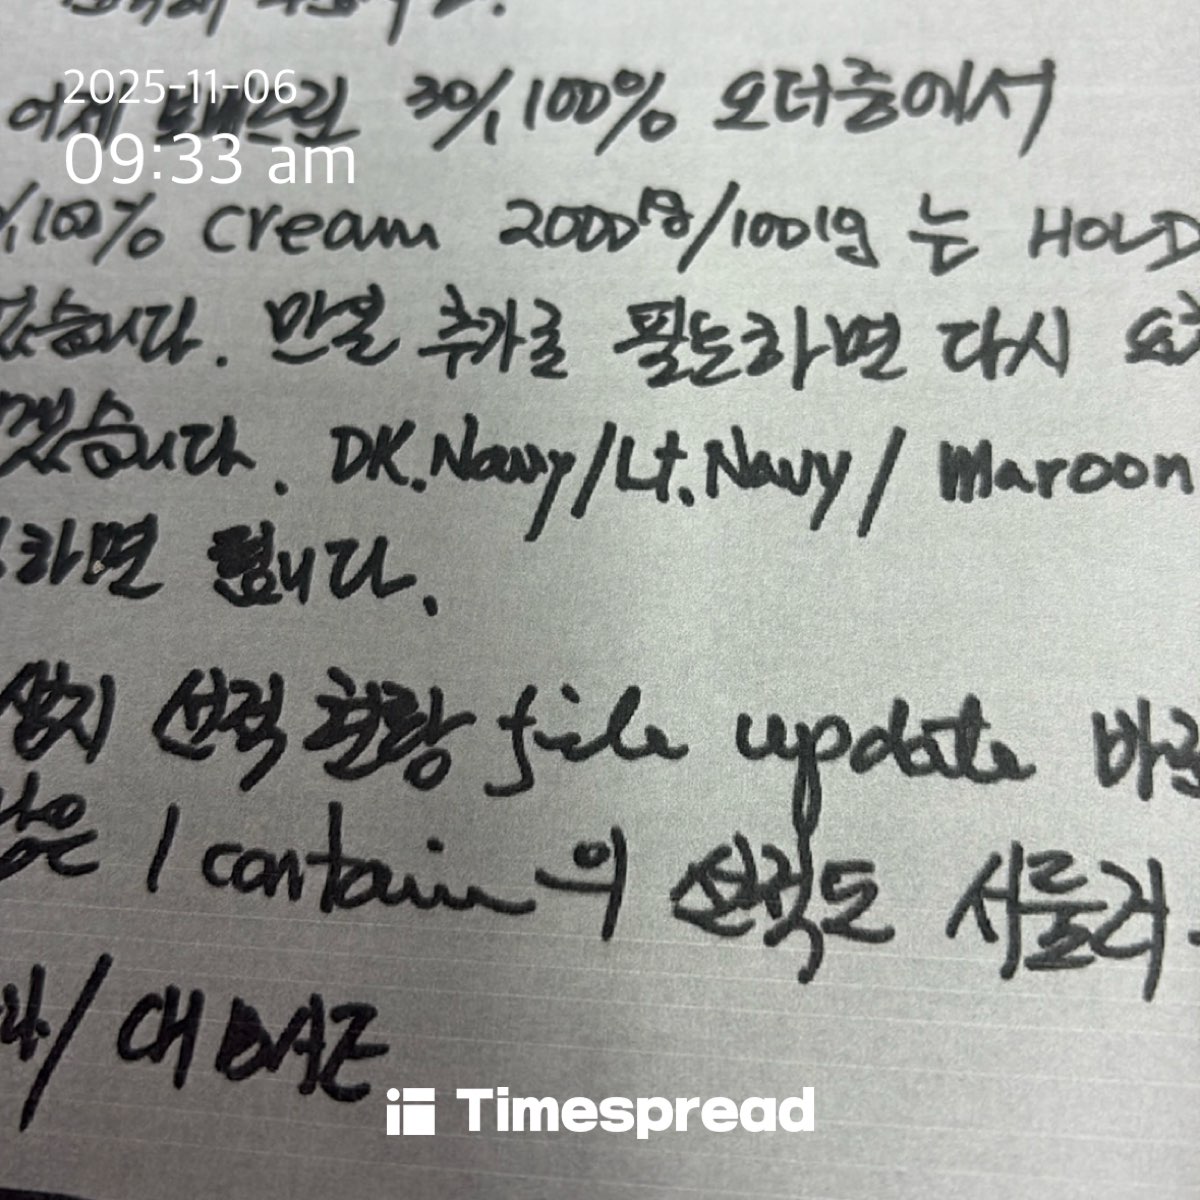 2025-11-06
어제 보내드린 30/,100% 오더중에서
09:33 am
/,100% cream 2000명/1001명 는 HOLD
습니다. 만일 추가로 필요하면 다시
겠습니다. DK.Navy/Lt.Navy/ Maroon
하면 됩니다.
선적 현황 file update
1 contain의 선적도 서둘러
/ 대
Timespread